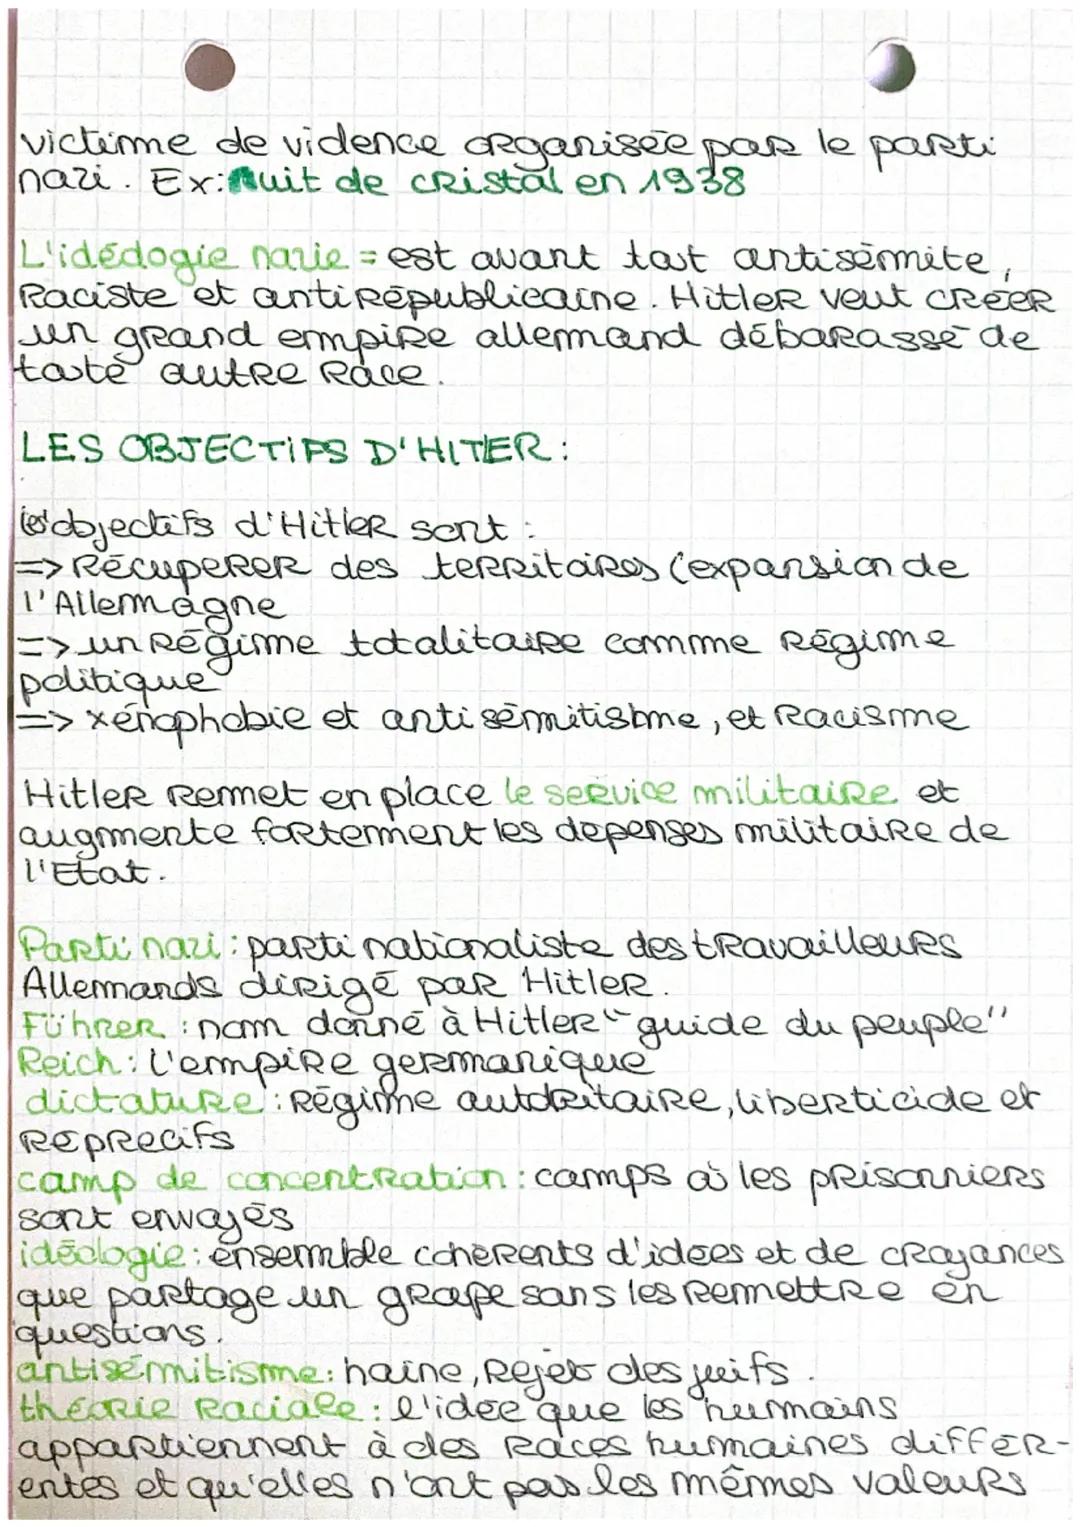 victime de violence organisée par le parti
nazi. Ex: Nuit de cristal en 1938
L'idéologie nazie = est avant tout antisémite,
Raciste et antirépublicaine. Hitler veut créer
un grand empire allemand débarassé de
toute autre Race.
LES OBJECTIFS D'HITLER :
les objectifs d'Hitler sont :
=> Récuperer des territoires (expansion de
l'Allemagne
=> un Régime totalitaire comme Régime
politique
=> xénophobie et antisémitisme, et Racisme
Hitler Remet en place le service militaire et
augmente fortement les depenses militaire de
l'Etat.
Parti nazi : parti nationaliste des travailleurs
Allemands dirigé par Hitler.
Führer : nom donné à Hitler "guide du peuple"
Reich : l'empire germanique
dictature : Régime autoritaire, liberticide et
Reprecifs
camp de concentration : camps où les prisonniers
sont envoyés
idéologie : ensemble cohérents d'idées et de croyances
que partage un groupe sans les Remettre en
questions.
antisémitisme : haine, Rejet des juifs.
théorie Raciale : l'idée que les humains
appartiennent à des Races humaines différ-
entes et qu'elles n'ont pas les mêmes valeurs